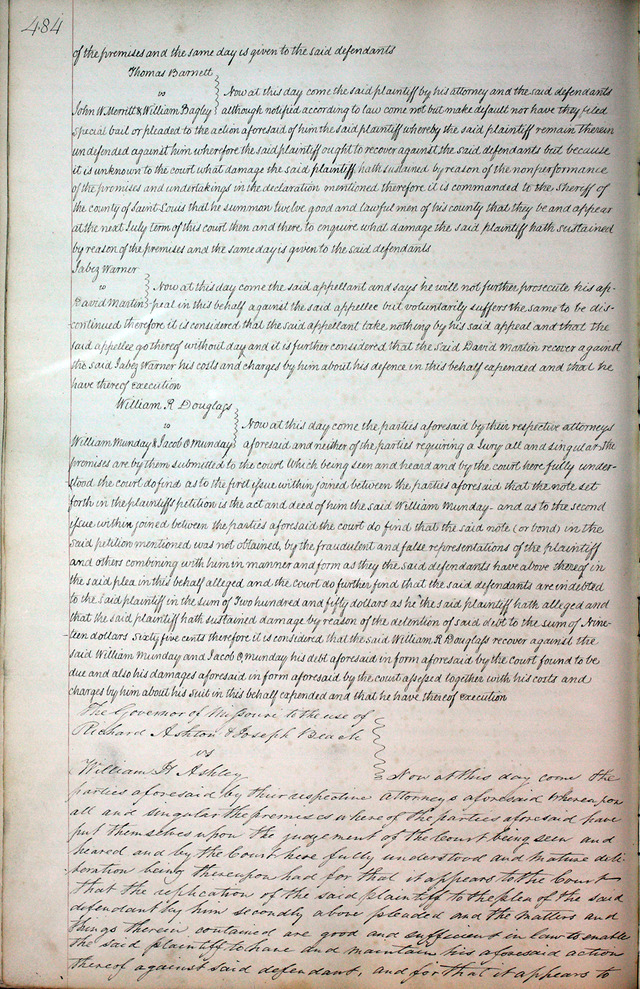 484
of the premises and the same day is given to the said defendants
Thomas Barnett
vs
Now at this day come the said plaintiff by his attorney and the said defendants
John W Merritt & William Bagley although notified according to law come not but make default nor have they filed
special bail or pleaded to the action aforesaid of him the said plaintiff whereby the said plaintiff remain therein
undefended against him wherefore the said plaintiff ought to recover against the said defendants but because
it is unknown to the court what damage the said plaintiff hath sustained by reason of the nonperformance
of the promises and undertakings in the declaration mentioned therefore it is commanded to the Sheriff of
the county of Saint Louis that he summon twelve good and lawful men of his county that they be and appear
at the next July term of this court then and there to enquire what damage the said plaintiff hath sustained
by reason of the premises and the same day is given to the said defendants
Jabez Warner
vs
Now at this day come the said appellant and says he will not further prosecute his ap-
David Martin peal in this behalf against the said appellee but voluntarily suffers the same to be dis-
continued therefore it is considered that the said appellant take nothing by his said appeal and that the
said appellee go thereof without day and it is further considered that the said David Martin recover against
the said Jabez Warner his costs and charges by him about his defence in this behalf expended and that he
have thereof execution
William R Douglass
vs
Now at this day come the parties aforesaid by their respective attorneys
William Munday & Jacob O Munday aforesaid and neither of the parties requiring a Jury all and singular the
premises are by them submitted to the court which being seen and heard and by the court here fully under-
stood the court do find as to the first issue within joined between the parties aforesaid that the note set
forth in the plaintiffs petition is the act and deed of him the said William Munday - and as to the second
issue within joined between the parties aforesaid the court do find that the said note (or bond) in the
said petition mentioned was not obtained, by the fraudulent and false representations of the plaintiff
and others combining with him in manner and form as they the said defendants have above thereof in
the said plea in this behalf alleged and the court do further find that the said defendants are indebted
to the said plaintiff in the sum of Two hundred and fifty dollars as he the said plaintiff hath alleged and
that the said plaintiff hath sustained damage by reason of the detention of said debt to the sum of Nine-
teen dollars Sixty five cents therefore it is considered that the said William R Douglass recover against the
said William Munday and Jacob O Munday his debt aforesaid in form aforesaid by the court found to be
due and also his damages aforesaid in form aforesaid by the court assessed together with his costs and
charges by him about his suit in this behalf expended and that he have thereof execution
The Governor of Missouri to the use of
Richard Ashton & Joseph Beach
vs
William H Ashley Now at this day come the
parties aforesaid by their respective attorneys aforesaid whereupon
all and singular the premises whereof the parties aforesaid have
put themselves upon the judgement of the Court being seen and
heared and by the Court here fully understood and mature deli-
beration being thereupon had for that it appears to the Court
that the replication of the said plaintiff to the plea of the said
defendant by him secondly above pleaded and the Matters and
things therein contained are good and sufficient in law to enable
the said plaintiff to have and maintain his aforesaid action
thereof against said defendant, and for that it appears to